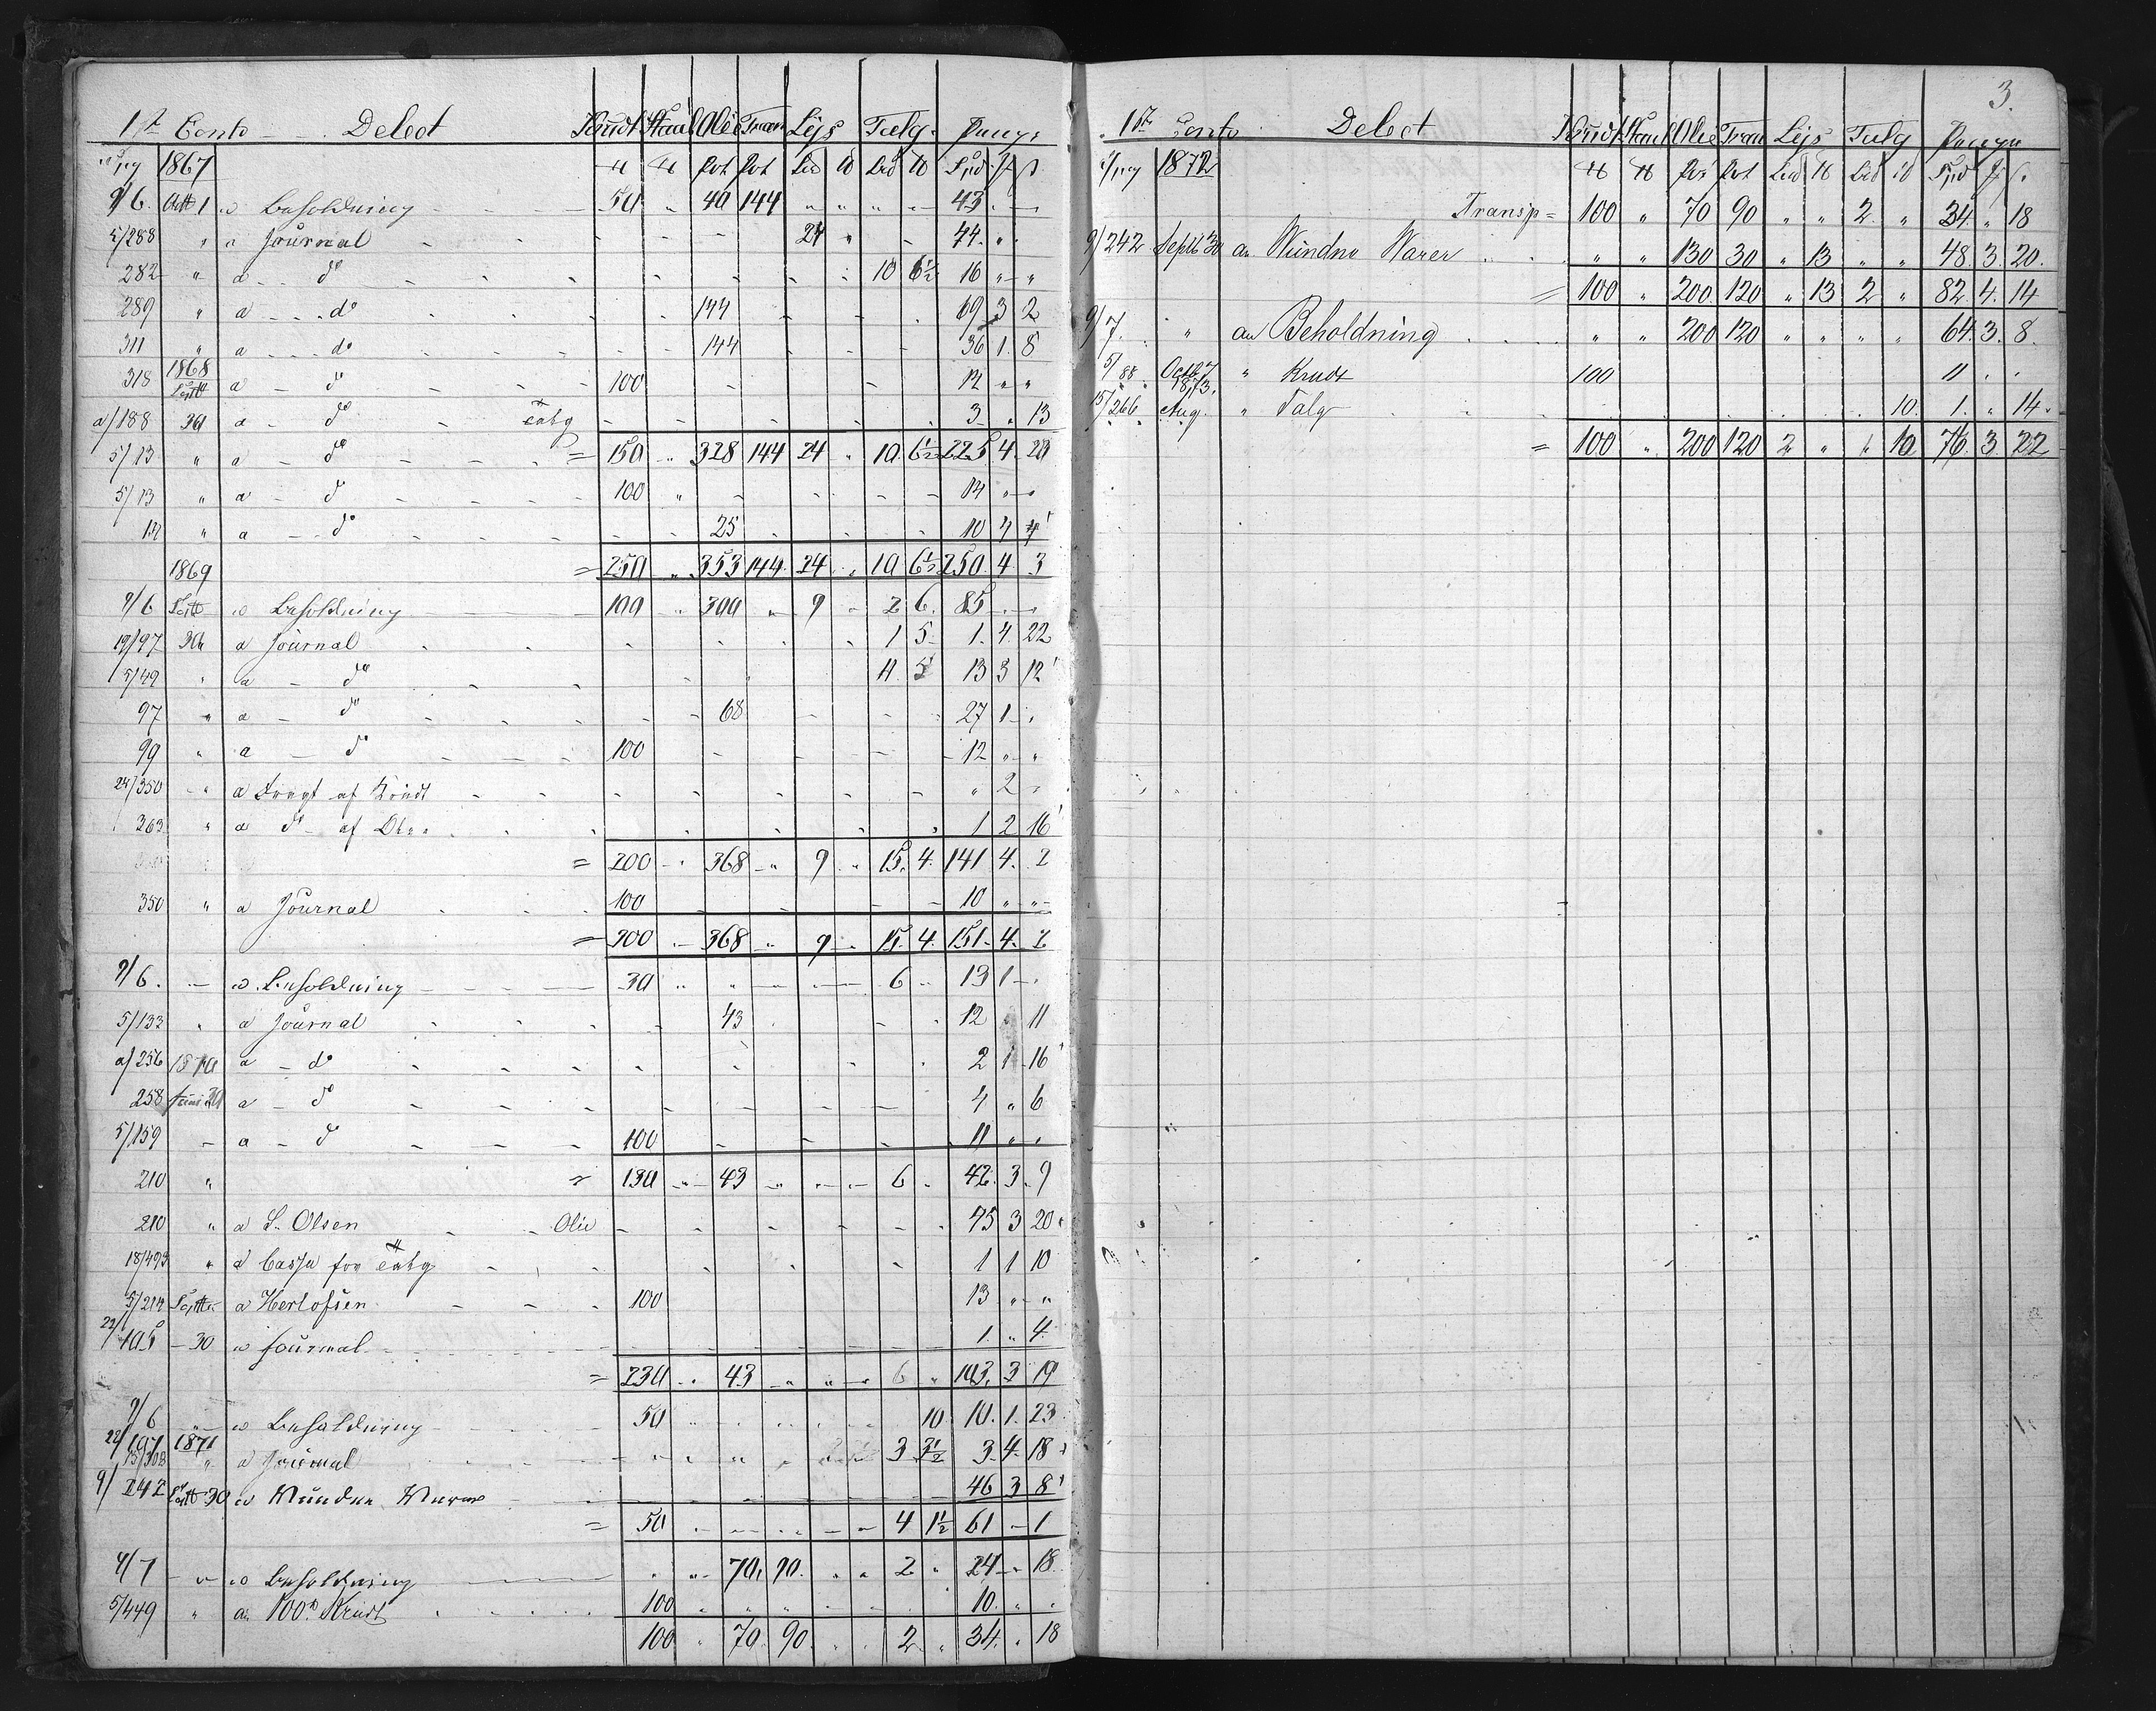 1ste Conto - Debet Krudt Staal Olie Tran Lys Talg Penge
Pag 1867 ℔ ℔ Pot Pot Lisd ℔ Lisd ℔ Spd # β
9/6. Octb 1 a Beholdning 50 " 40 144 " " " " 43 " -
5/288 " a Journal 24 " 44. " "
282 " a do 10 6½ 16 " "
289 " a do 144 69 3 2
311 " a do 144 36 1. 8
318 1868 Septb a do 100 12 " "
a/188 30 a do 3 " 13
5/13 " a do = 150 " 328 144 24 " 10 6½ 225 4 20
5/13 " a do 100 " 14 " "
14 " a do 25 10 4 4
1869 = 250 " 353 144 24 " 10 6½ 250. 4. 3
9/6 Septb a Beholdning 100 " 300 " 9 " 2 6. 85 - -
19/97 30 a Journal 1 5 1. 4. 22
5/49 " a do 11. 5 13 3 12
97 " a do 68 27 1 "
99 " a do 100 12 " "
24/350 " a Fragt af Krudt " 2 "
363 " a do af Olie 1 2 16
= 200 " 368 " 9 " 15. 4. 141 4. 2
350 " a Journal 100 10 " "
= 300 " 368 " 9 " 15. 4. 151. 4. 2
9/6. " a Beholdning 30 " " 6 " 13 1 "
5/133 " a Journal 43 12 " 11
a/256 1870 a do 2 1 16
258 Juni 30 a do 4 " 6
5/159 " a do 100 11 " "
210 " = 130 " 43 " " " 6 " 42. 3. 9
210 " a S. Olsen Olie 45 3 20
18/493 " a Cassa for 1 1 10
5/214 Septbr a Herlofsen 100 13 " "
22/105 - 30 a Journal 1. " 4.
= 230 " 43 " " " 6 " 103. 3 19
9/6 " a Beholdning 50 10 10. 1. 23
22/197 1871
15/308 " a Journal 3 3½ 3. 4. 18
9/242 Septb 30 a Mündre Warer 46 3 8
= 50 4 1½ 61 - 1
9/7 " a Beholdning " " 70. 90. " " 2 " 24 " 18
5/449 " a 100 ℔ Krudt 100 10. " "
100 " 70. 90. " " 2. " 34. " 18
3.
1ste Conto Debet Krudt Staal Olie Tran Lys Talg Penge
Pag 1872 ℔ ℔ Pot Pot Lisd ℔ Lisd ℔ Spd # β
Transp = 100 " 70 90 " " 2 " 34. " 18
9/242 Septb 30 an Mündre Warer " " 130 30 " 13 " " 48. 3. 20.
= 100 " 200. 120 " 13 2 " 82. 4. 14
9/7. " an Beholdning " " 200 120 " " " " 64. 3. 8.
5/88 Octb. 7 " Krudt 100 11 " "
1873.
15/266 Aug. " Talg 10. 1. " 14.
= 100 " 200 120 2 " " 10 76. 3. 22